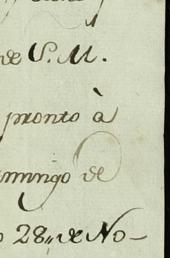 de S. M.
pronto à
omingo de
28,, de No-